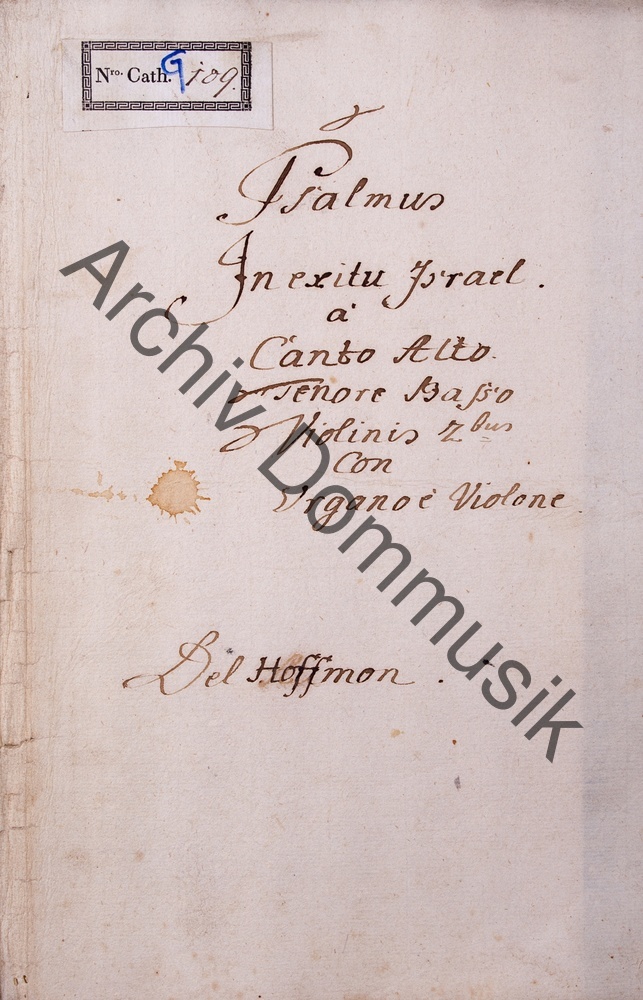 Nro. Cath. G 109.
Psalmus
In exitu Israel.
a
Canto Alto.
Tenore Basso
Violinis 2bus
Con
Organo è Violone
Del Hoffmon.
Archiv Dommusik